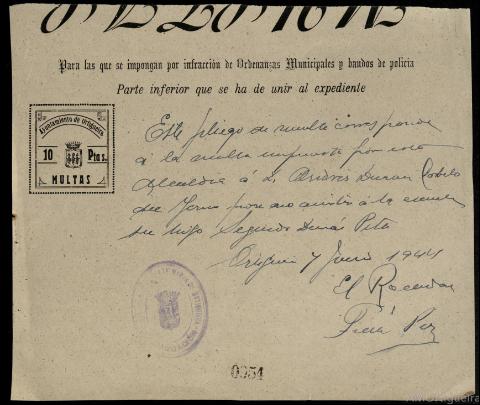 Para las que se impongan por infracción de Ordenanzas Municipales y bandos de policía
Parte inferior que se ha de unir al expediente
Ayuntamiento de Ortigueira
10 Ptas.
MULTAS
Este pliego de multa corresponde
á la multa impuesta por esta
Alcaldia á D. Andres Duran
de por no asistir á la escuela
su hijo Segundo Durán
7 Junio 1944
El
0954